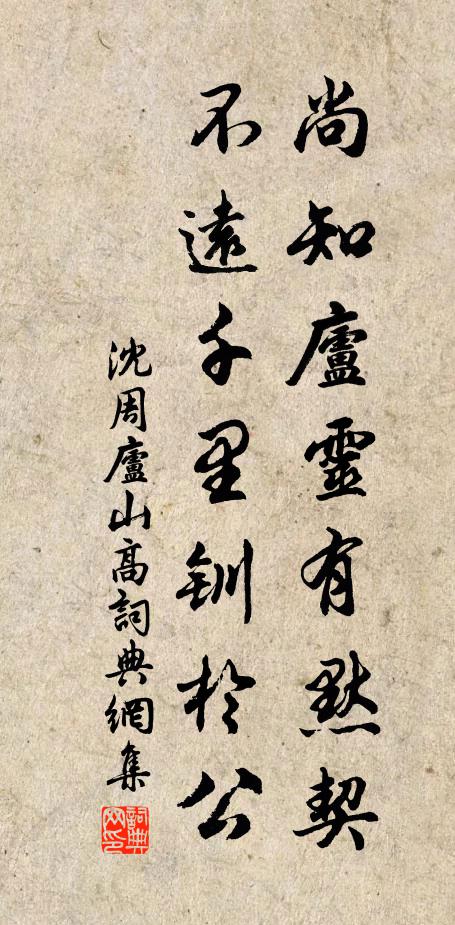 尚知廬靈有默契
不遠千里釧於公
沈周廬山高詞典網集
詞典网印